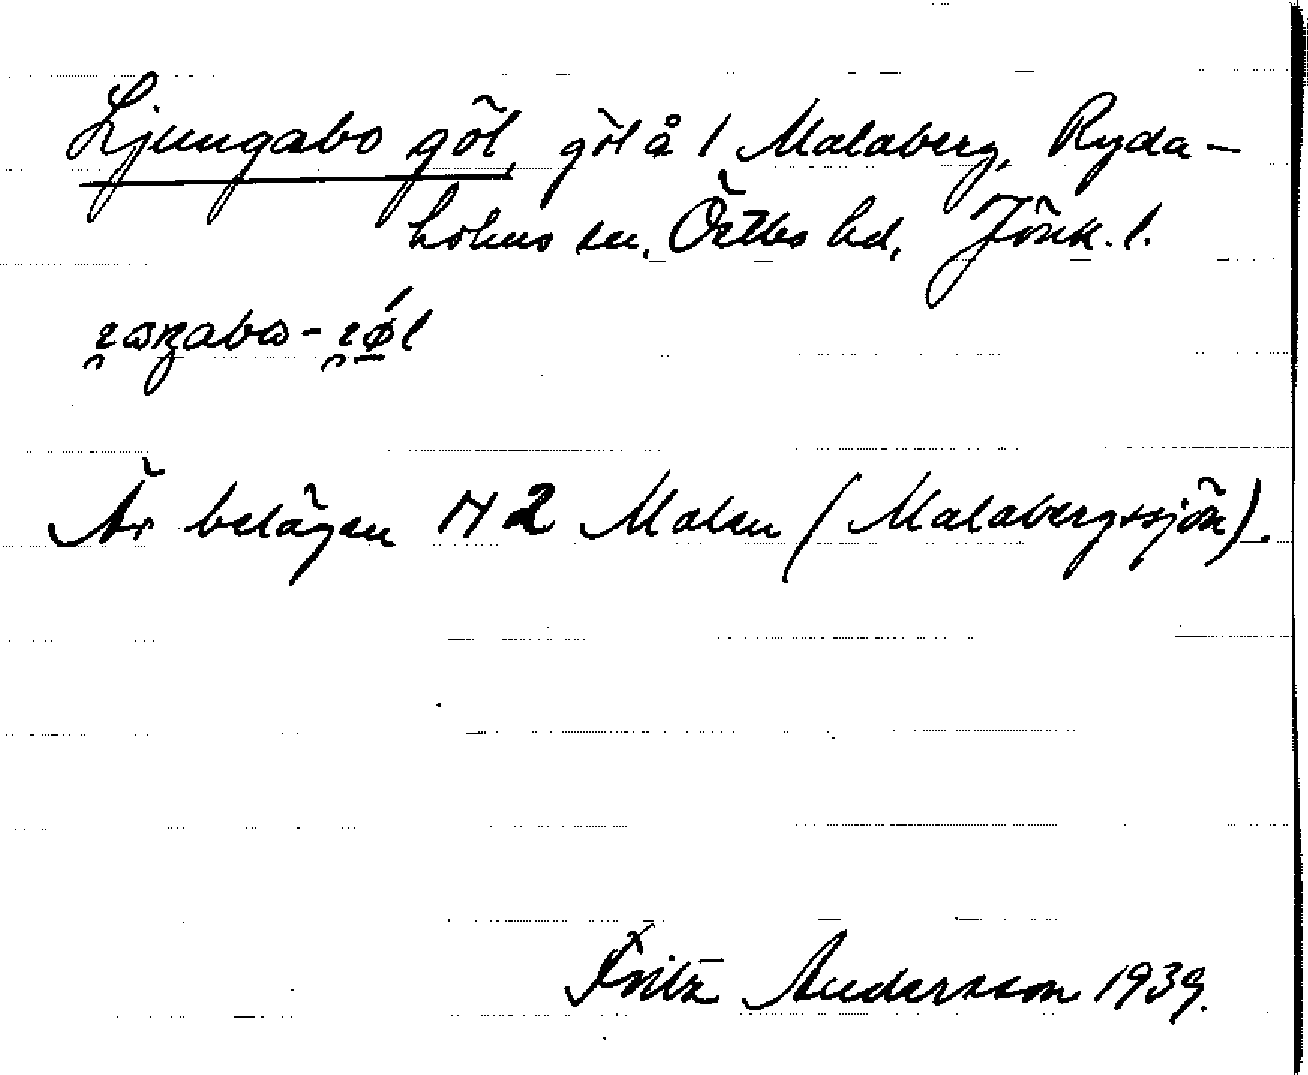 Ljungabo göl, göl å 1 Malaberg, Ryda-
holms sn, Östbo hd, Jönk. l.
Är belägen N 2 Malen (Malabergssjön).
Fritz Andersson 1939.